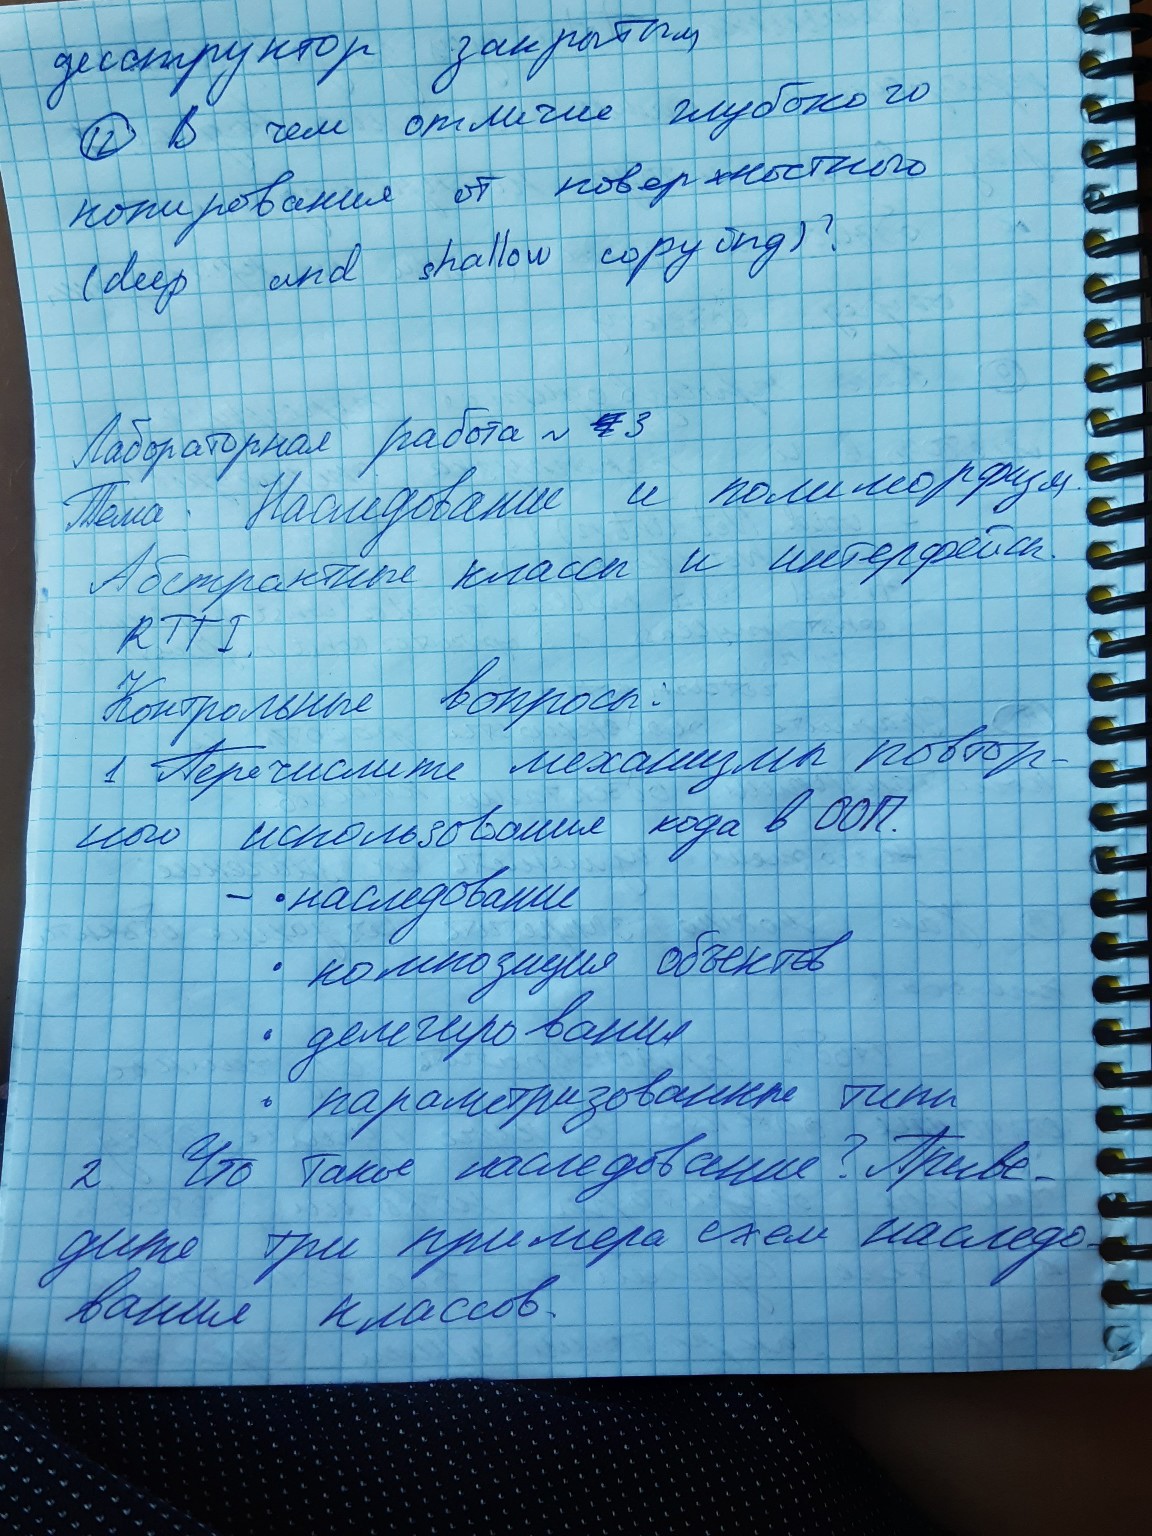 десструктор закрытым
12 В чем отличие глубокого
копирования от поверхностного
(deep and shallow copying)?
Лабораторная работа ~ 3
Тема. Наследование и полиморфизм.
Абстрактные классы и интерфейсы.
RTTI.
Контрольные вопросы:
1 Перечислите механизмы повтор-
ного использования кода в ООП.
– • наследование
• композиция объектов
• делегирования
• параметризованные типы
2. Что такое наследование? Приве-
дите три примера схем наследо-
вания классов.